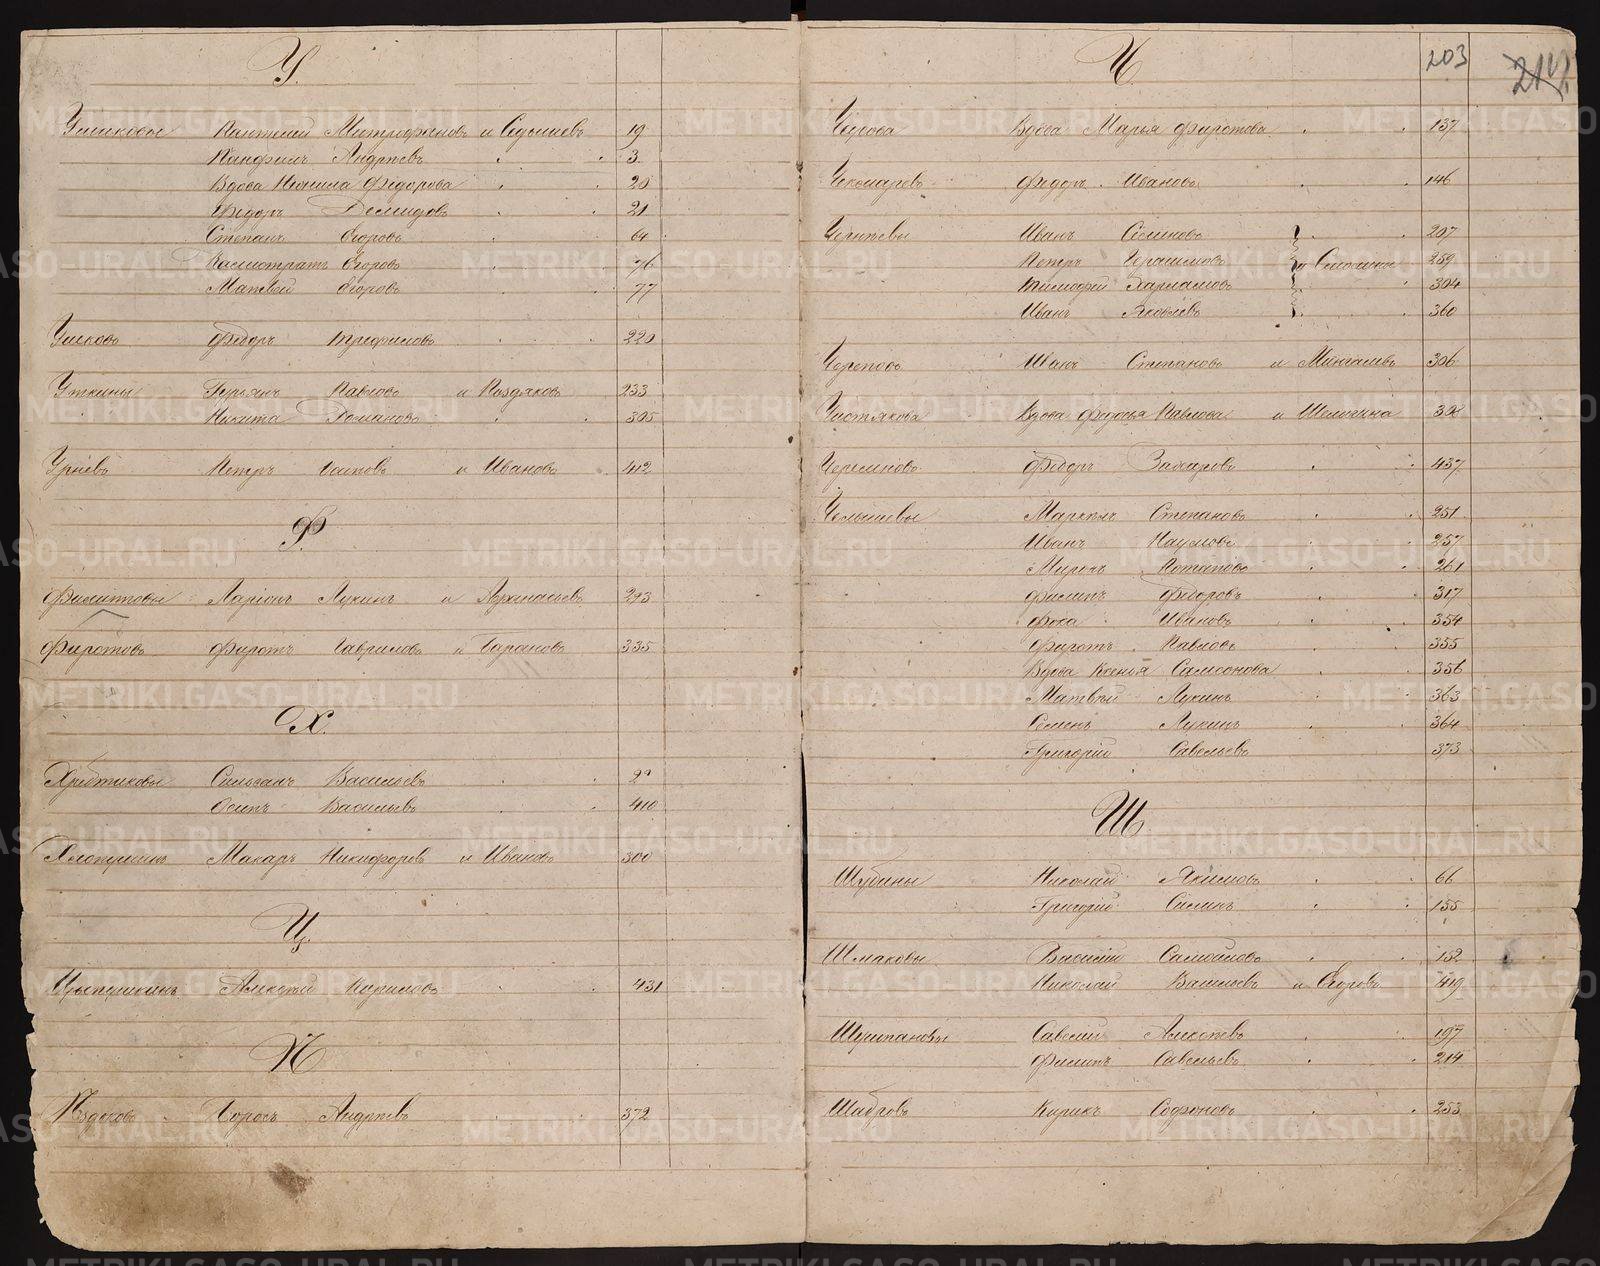 У.
Ушаковы Пантелей Митрофановъ и Седышевъ 19
Панфилъ Андреевъ 3
Вдова Неонила Федорова 20
Федоръ Демидовъ 21
Степанъ Егоровъ 64
Калистратъ Егоровъ 76
Матвей Егоровъ 77
Ушковъ Федоръ Трифоновъ 220
Уткины Гурьянъ Павловъ и Поздяковъ 233
Никита Романовъ 305
Петръ и Ивановъ 412
Ф.
Филипповы Ларіонъ Лукинъ и 293
Фирсовъ Гавриловъ и Барановъ 335
Х.
Хребтиковы Василіевъ
Осипъ Васильевъ 410
Хлопушинъ Макаръ Никифоровъ и Ивановъ 300
Ц.
Цыпушкинъ Алексей Кириловъ 431
П
Андреевъ 372
Ч.
203
214
Вдова Марья 137
Чекмаревъ Федоръ Ивановъ 146
Иванъ Семеновъ 207
Петръ Герасимовъ 259
Тимофей 304
Иванъ Яковлевъ 360
Череповъ Иванъ Степановъ и 306
Чистякова Вдова Федосья Павлова и Шемягина
Черемновъ Федоръ Захаровъ 437
Челышевы Степановъ 251
Иванъ Наумовъ 257
Миронъ Потаповъ 261
Филипъ Федоровъ 317
Фока Ивановъ 354
Павловъ 355
Вдова Ксенья Самсонова 356
Матвей Лукинъ 363
Семенъ Лукинъ 364
Григорій Савельевъ 373
Ш
Шубины Николай Якимовъ 66
Григорій Силинъ 155
Шмаковы Василій Самойловъ 152
Николай Василіевъ и Егоровъ 419
Савелій Алексеевъ 197
Филипъ Савельевъ 214
Шабровъ Кирикъ Софоновъ 253
METRIKI.GASO-URAL.RU